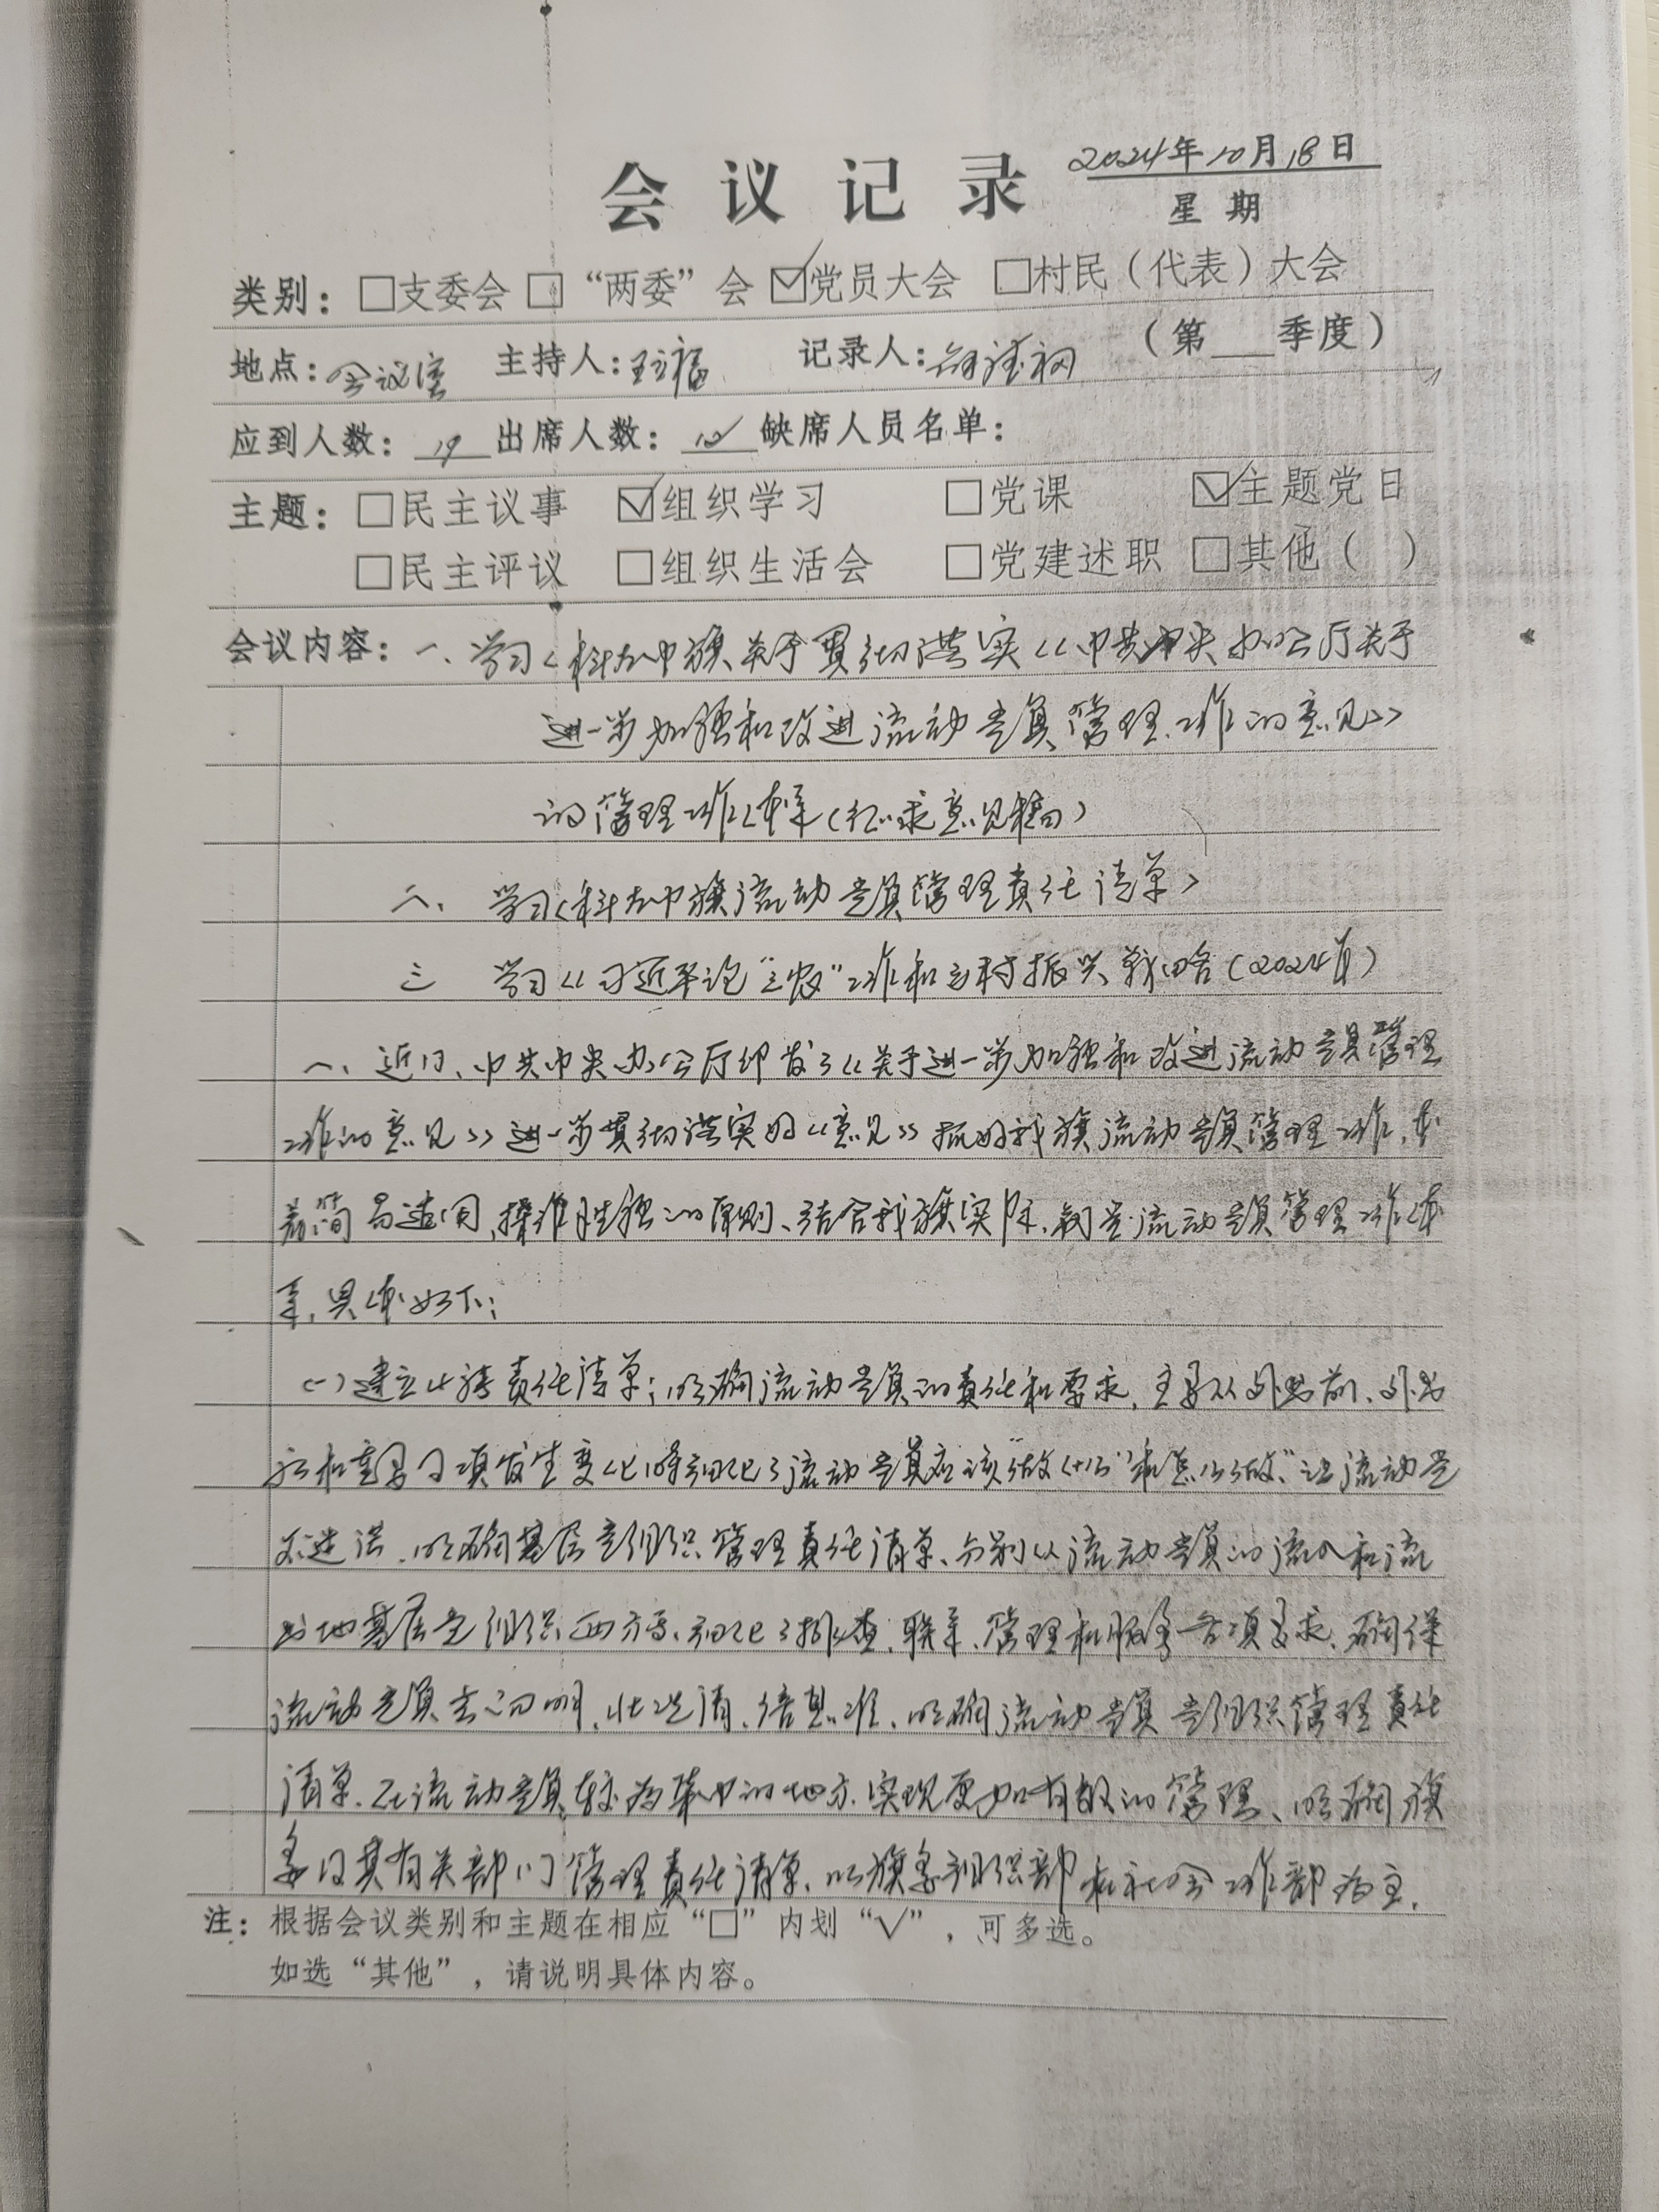 会议记录
2024年10月18日
星期
类别：□支委会 □“两委”会 ☑党员大会 □村民（代表）大会
（第___季度）
地点：会议室 主持人：王立福 记录人：
应到人数：19 出席人数：12 缺席人员名单：
主题：□民主议事 ☑组织学习 □党课 ☑主题党日
□民主评议 □组织生活会 □党建述职 □其他（ ）
会议内容：一、学习<科左中旗关于贯彻落实《中共中央办公厅关于
进一步加强和改进流动党员管理工作的意见》
的管理工作体系（征求意见稿）
二、学习<科左中旗流动党员管理责任清单>
三 学习《习近平论“三农”工作和乡村振兴战略（2024年）
一、近日、中共中央办公厅印发了《关于进一步加强和改进流动党员管理
工作的意见》进一步贯彻落实好《意见》抓好我旗流动党员管理工作，本
着简易适用，操作性强的原则、结合我旗实际，制定流动党员管理工作体
系，具体如下：
（一）建立业务责任清单；明确流动党员的责任和要求，主要从外出前、外出
后和重要事项发生变化时细化了流动党员应该“做什么”和“怎么做”让流动党
不迷茫，明确基层党组织管理责任清单、分别从流动党员的流入和流
出地基层党组织两方面、细化了排查，联系、管理和服务各项要求，确保
流动党员去向明、状况清、信息准、明确流动党员党组织管理责任
清单，在流动党员较为集中的地方实现更加有效的管理、明确旗
委及其有关部门管理责任清单，以旗委组织部和社会工作部为主，
注：根据会议类别和主题在相应“□”内划“√”，可多选。
如选“其他”，请说明具体内容。